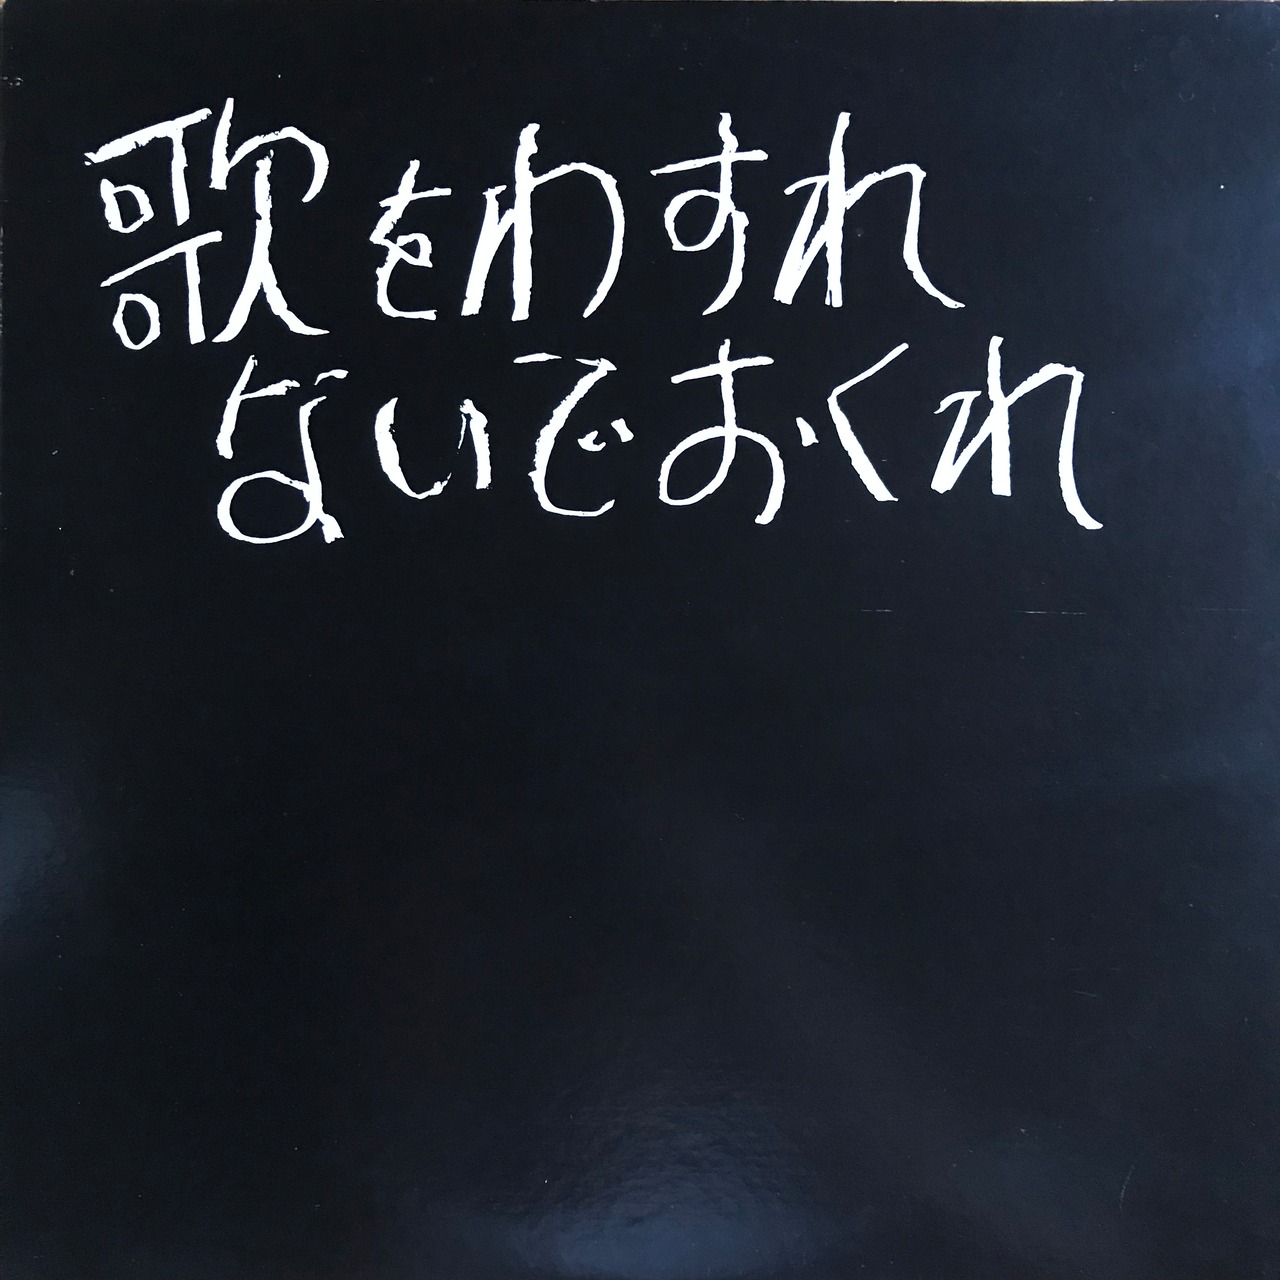 歌をわすれ
ないでおくれ